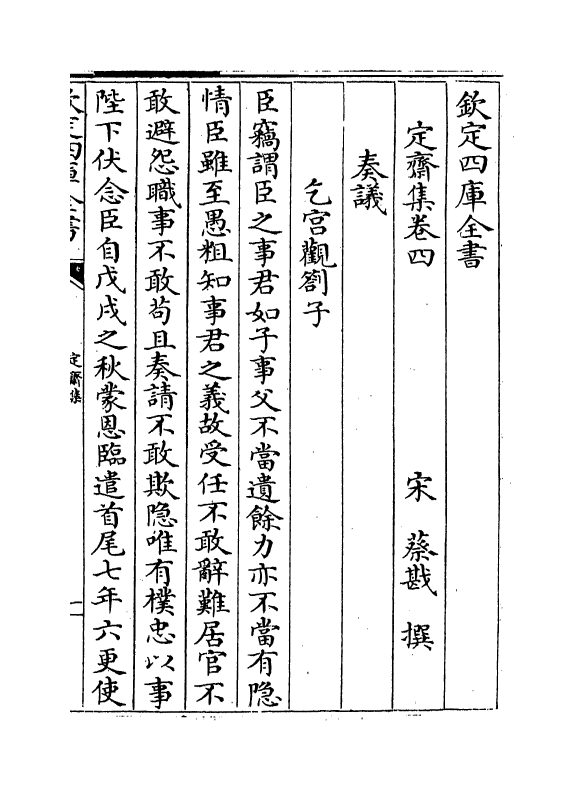 欽定四庫全書
定齋集卷四　宋　蔡戡　撰
奏議
乞宫觀劄子
臣竊謂臣之事君如子事父不當遺餘力亦不當有隐
情臣雖至愚粗知事君之義故受任不敢辭難居官不
敢避怨職事不敢苟且奏請不敢欺隐唯有樸忠以事
陛下伏念臣自戊戌之秋蒙恩臨遣首尾七年六更使
欽定四庫全書
定齋集
一